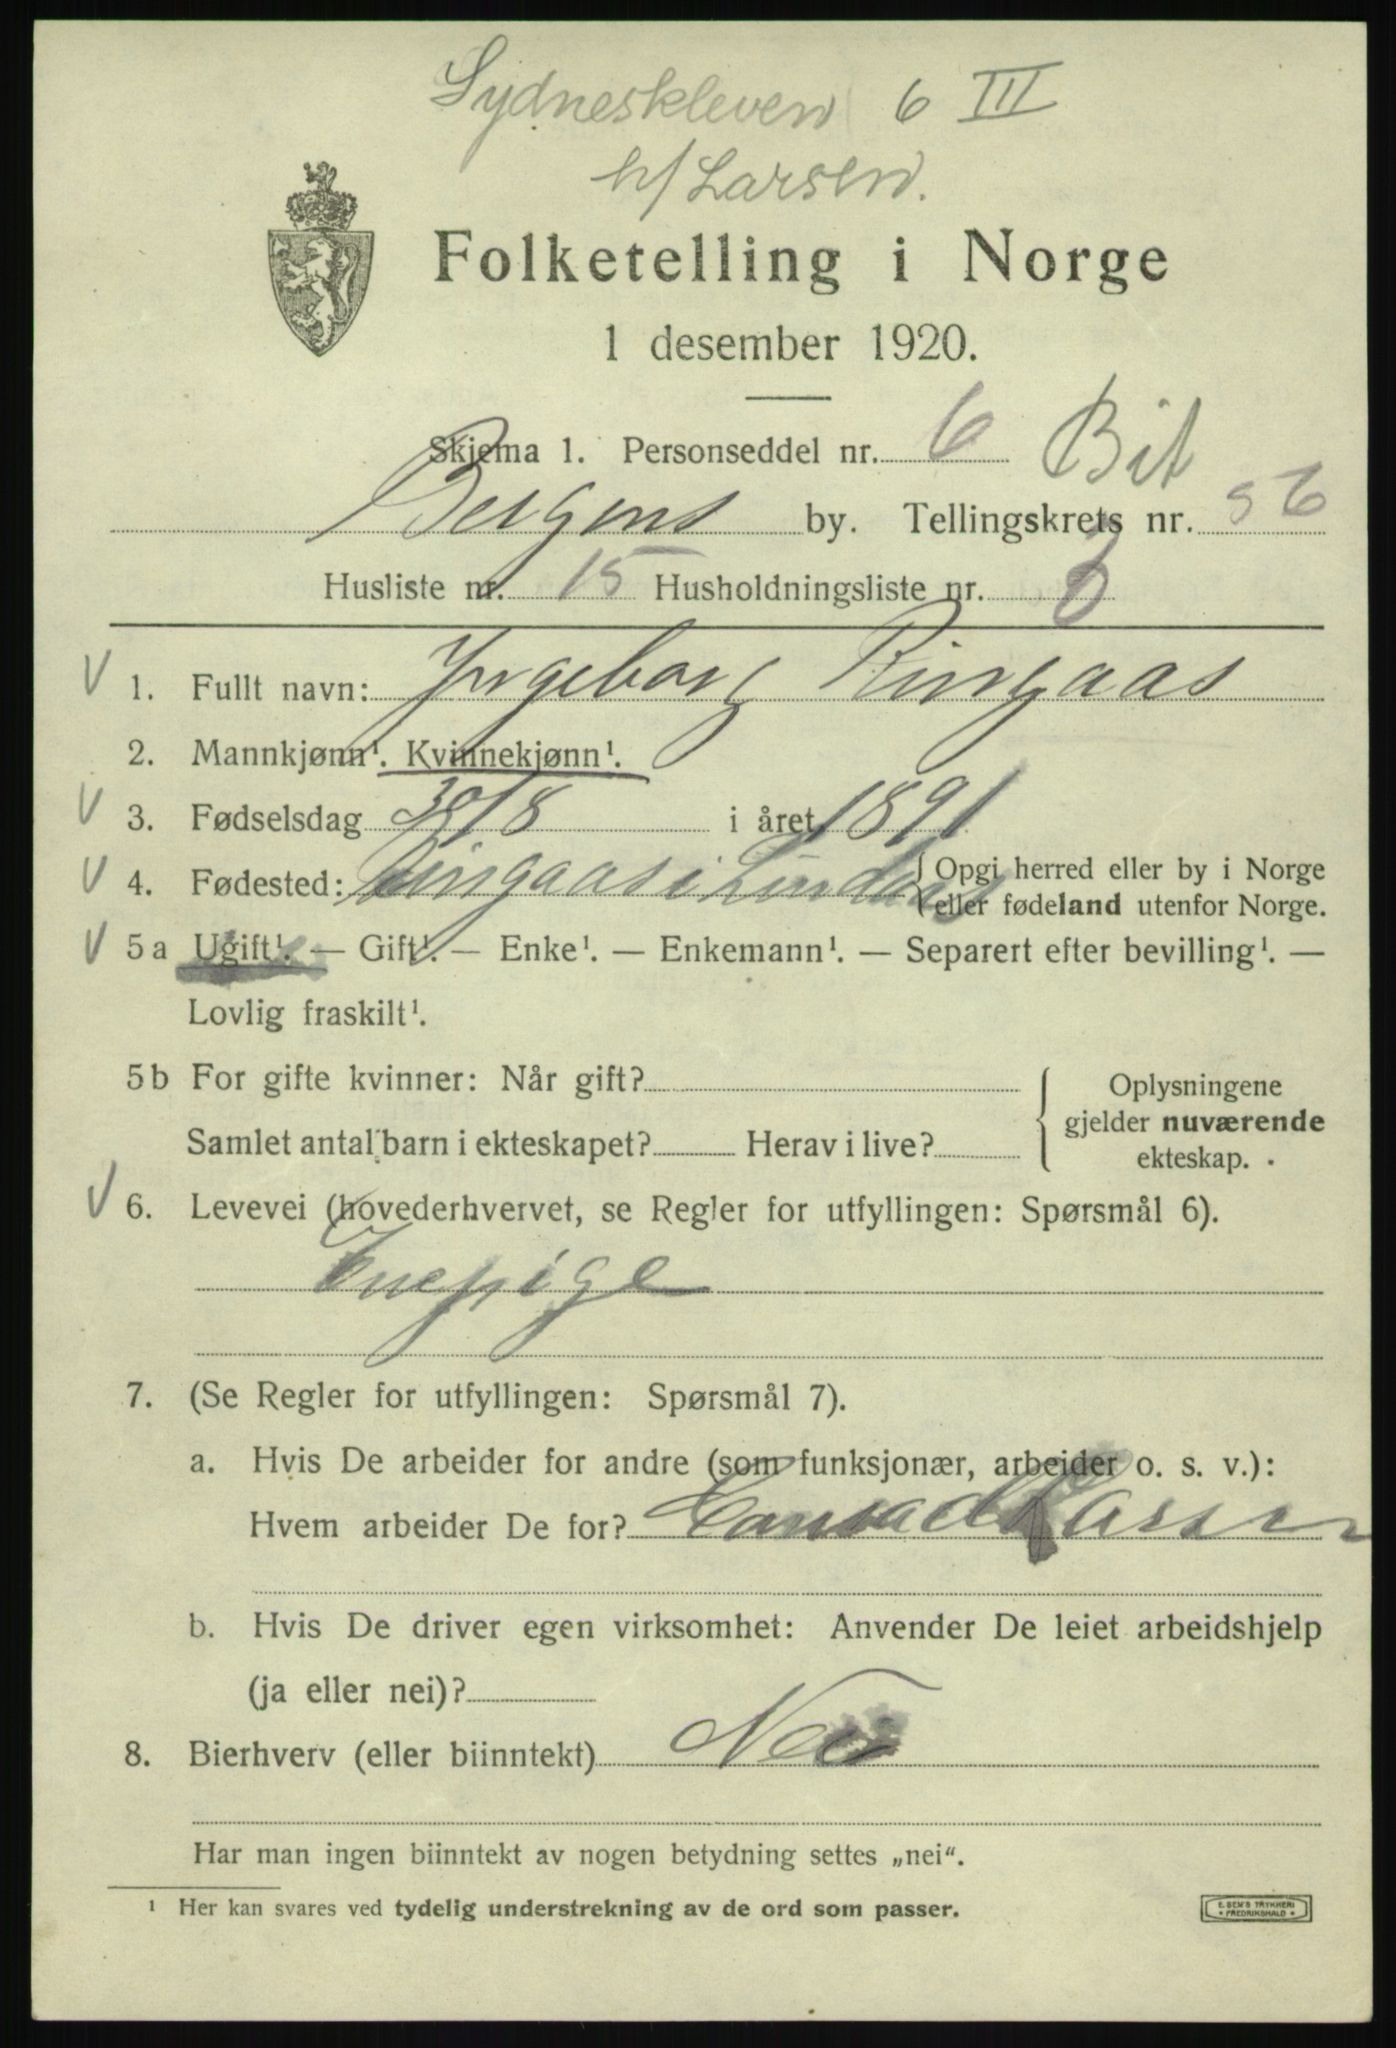 Sydneskleven 6 III
h/Larsen.
Folketelling i Norge
1 desember 1920.
Skjema 1. Personseddel nr. 6 Bit
Bergens by. Tellingskrets nr. 56
Husliste nr. 15 Husholdningsliste nr. 3
V 1. Fullt navn: Yngeborg Ringaas
2. Mannkjønn¹. Kvinnekjønn¹.
V 3. Fødselsdag 30/8 i året 1891
V 4. Fødested: Ringaas i Lindaas { Opgi herred eller by i Norge
eller fødeland utenfor Norge.
V 5a Ugift¹. — Gift¹. — Enke¹. — Enkemann¹. — Separert efter bevilling¹. —
Lovlig fraskilt¹.
5b For gifte kvinner: Når gift? { Oplysningene
gjelder nuværende
Samlet antal barn i ekteskapet? Herav i live? ekteskap.
V 6. Levevei (hovederhvervet, se Regler for utfyllingen: Spørsmål 6).
Enepige
7. (Se Regler for utfyllingen: Spørsmål 7).
a. Hvis De arbeider for andre (som funksjonær, arbeider o. s. v.):
Hvem arbeider De for? Conrad Larsen
b. Hvis De driver egen virksomhet: Anvender De leiet arbeidshjelp
(ja eller nei)?
8. Bierhverv (eller biinntekt) Nei
Har man ingen biinntekt av nogen betydning settes „nei“.
¹ Her kan svares ved tydelig understrekning av de ord som passer.
E. SEM'S TRYKKERI
• FREDRIKSHALD •